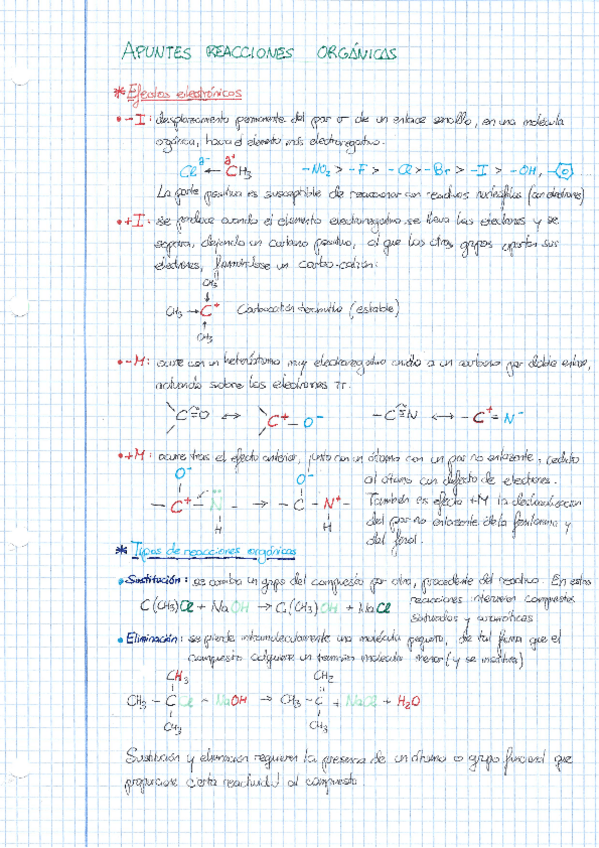 APUNTES REACCIONES ORGÁNICAS
* Efectos electrónicos
• -I: desplazamiento permanente del par σ de un enlace sencillo, en una molécula
orgánica, hacia el elemento más electronegativo.
Cl δ- ← CH3 δ+ -NO2 > -F > -Cl > -Br > -I > -OH, -
La parte positiva es susceptible de reaccionar con reactivos nucleófilos (con electrones)
• +I: se produce cuando el elemento electronegativo se lleva los electrones y se
separa, dejando un carbono positivo, al que los otros grupos aportan sus
electrones, formándose un carbo-catión:
CH3
↓
CH3 → C+ Carbocatión terciario (estable)
↑
CH3
• -M: ocurre con un heteroátomo muy electronegativo unido a un carbono por doble enlace,
actuando sobre los electrones π.
C=O ↔ C+ - O- - C≡N ↔ - C+ = N-
• +M: ocurre tras el efecto anterior, junto con un átomo con un par no enlazante, cedido
al átomo con defecto de electrones.
O- O-
- C+ - N - → - C - N+ -
H H
También es efecto +M la deslocalización
del par no enlazante de la
y
del fenol.
* Tipos de reacciones orgánicas
• Sustitución: se cambia un grupo del compuesto por otro, procedente del reactivo. En estas
C(CH3)Cl + NaOH → C(CH3)OH + NaCl reacciones intervienen compuestos
saturados y aromáticos
• Eliminación: se pierde intramolecularmente una molécula pequeña, de tal forma que el
compuesto adquiere un tamaño molecular menor (y se insatura)
CH3 CH2
CH3 - C Cl - NaOH → CH3 - C + NaCl + H2O
CH3 CH3
Sustitución y eliminación requieren la presencia de un átomo o grupo funcional que
proporcione cierta reactividad al compuesto.